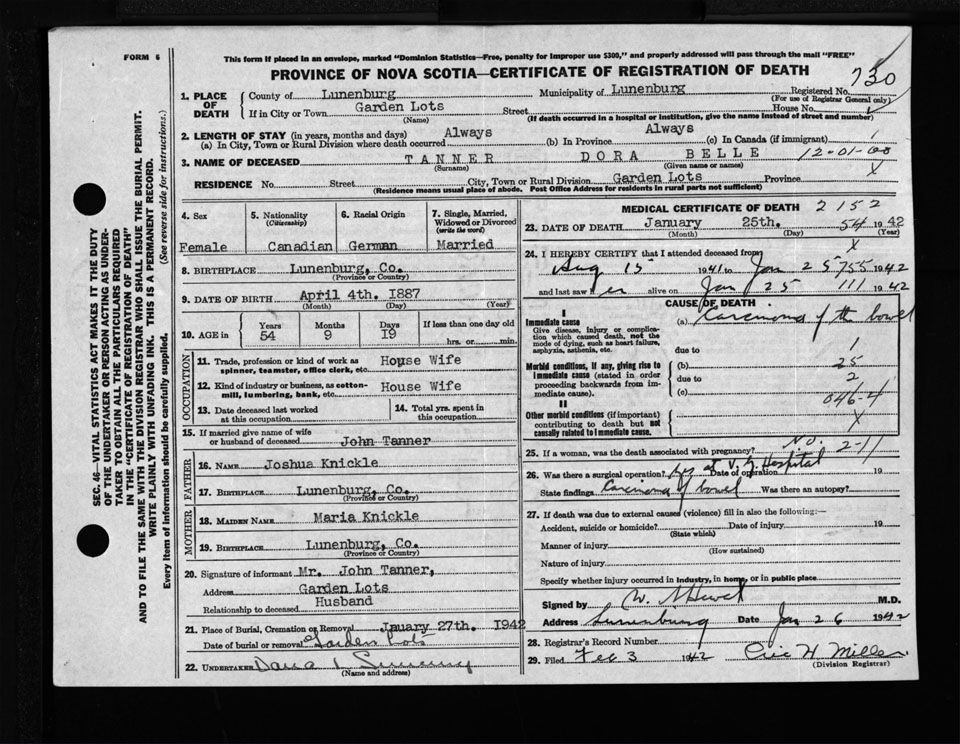 FORM 6
This form if placed in an envelope, marked "Dominion Statistics—Free, penalty for improper use $300," and properly addressed will pass through the mail "FREE"
PROVINCE OF NOVA SCOTIA—CERTIFICATE OF REGISTRATION OF DEATH
730
1. PLACE OF DEATH
County of Lunenburg Municipality of Lunenburg Registered No.
(For use of Registrar General only)
If in City or Town Garden Lots Street House No.
(Name) (If death occurred in a hospital or institution, give the name instead of street and number)
2. LENGTH OF STAY (in years, months and days)
(a) In City, Town or Rural Division where death occurred Always (b) In Province Always (c) In Canada (if immigrant)
3. NAME OF DECEASED TANNER DORA BELLE 12-01-00
(Surname) (Given name or names)
RESIDENCE No. Street City, Town or Rural Division Garden Lots Province X
(Residence means usual place of abode. Post Office Address for residents in rural parts not sufficient)
4. Sex Female
5. Nationality (Citizenship) Canadian
6. Racial Origin German
7. Single, Married, Widowed or Divorced (write the word) Married
8. BIRTHPLACE Lunenburg, Co.
(Province or Country)
9. DATE OF BIRTH April 4th. 1887
(Month) (Day) (Year)
10. AGE in Years 54 Months 9 Days 19 If less than one day old hrs. or min.
OCCUPATION
11. Trade, profession or kind of work as spinner, teamster, office clerk, etc. House Wife
12. Kind of industry or business, as cotton-mill, lumbering, bank, etc. House Wife
13. Date deceased last worked at this occupation
14. Total yrs. spent in this occupation
15. If married give name of wife or husband of deceased John Tanner
FATHER
16. NAME Joshua Knickle
17. BIRTHPLACE Lunenburg, Co.
(Province or Country)
MOTHER
18. MAIDEN NAME Maria Knickle
19. BIRTHPLACE Lunenburg, Co.
(Province or Country)
20. Signature of informant Mr. John Tanner,
Address Garden Lots
Relationship to deceased Husband
21. Place of Burial, Cremation or Removal
Date of burial or removal January 27th. 1942
Garden Lots
22. UNDERTAKER
(Name and address)
MEDICAL CERTIFICATE OF DEATH 2152
23. DATE OF DEATH January 25th. 54 1942
(Month) (Day) (Year)
24. I HEREBY CERTIFY that I attended deceased from X
Aug 15 1941 to Jan 25 755 1942
and last saw her alive on Jan 25 111 1942
CAUSE OF DEATH
I
Immediate cause
Give disease, injury or complication which caused death, not the mode of dying, such as heart failure, asphyxia, asthenia, etc.
(a) Carcinoma of the bowel
due to 1
Morbid conditions, if any, giving rise to immediate cause (stated in order proceeding backwards from immediate cause).
(b) 25
due to 2
(c) 046-4
II
Other morbid conditions (if important) contributing to death but not causally related to immediate cause. X
25. If a woman, was the death associated with pregnancy? No. 2-11
26. Was there a surgical operation? Yes at V. G. Hospital Date of operation 19
State findings Carcinoma of bowel Was there an autopsy?
27. If death was due to external causes (violence) fill in also the following:—
Accident, suicide or homicide? Date of injury 19
(State which)
Manner of injury
(How sustained)
Nature of injury
Specify whether injury occurred in industry, in home, or in public place
Signed by W. M.D.
Address Lunenburg Date Jan 26 1942
28. Registrar's Record Number
29. Filed Feb 3 1942
(Division Registrar)
SEC. 46—VITAL STATISTICS ACT MAKES IT THE DUTY
OF THE UNDERTAKER OR PERSON ACTING AS UNDER-
TAKER TO OBTAIN ALL THE PARTICULARS REQUIRED
IN THE "CERTIFICATE OF REGISTRATION OF DEATH"
AND TO FILE THE SAME WITH THE DIVISION REGISTRAR WHO SHALL ISSUE THE BURIAL PERMIT.
WRITE PLAINLY WITH UNFADING INK. THIS IS A PERMANENT RECORD.
Every item of information should be carefully supplied. (See reverse side for instructions.)